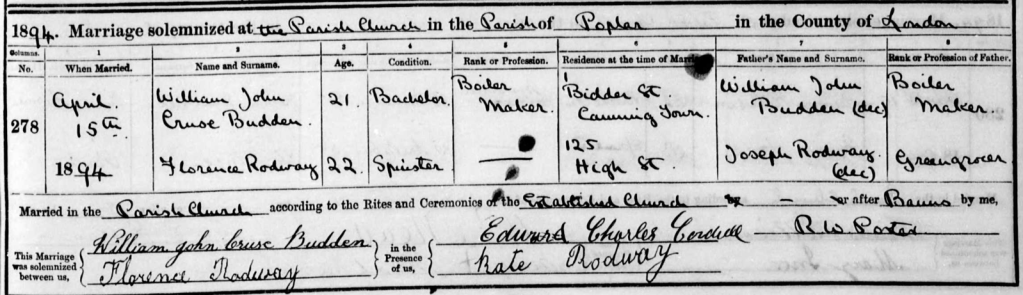 1894. Marriage solemnized at the Parish Church in the Parish of Poplar in the County of London
Columns. 1 2 3 4 5 6 7 8
No. When Married. Name and Surname. Age. Condition. Rank or Profession. Residence at the time of Marriage Father's Name and Surname. Rank or Profession of Father.
278 April 15th William John Cruse Budden 21 Bachelor Boiler Maker 1 Bidder St. Canning Town. William John Budden (dec) Boiler Maker
1894 Florence Rodway 22 Spinster — 125 High St. Joseph Rodway (dec) Greengrocer
Married in the Parish Church according to the Rites and Ceremonies of the Established Church by — or after Banns by me,
This Marriage was solemnized between us, William John Cruse Budden in the Presence of us, Edward Charles R. W.
Florence Rodway Kate Rodway